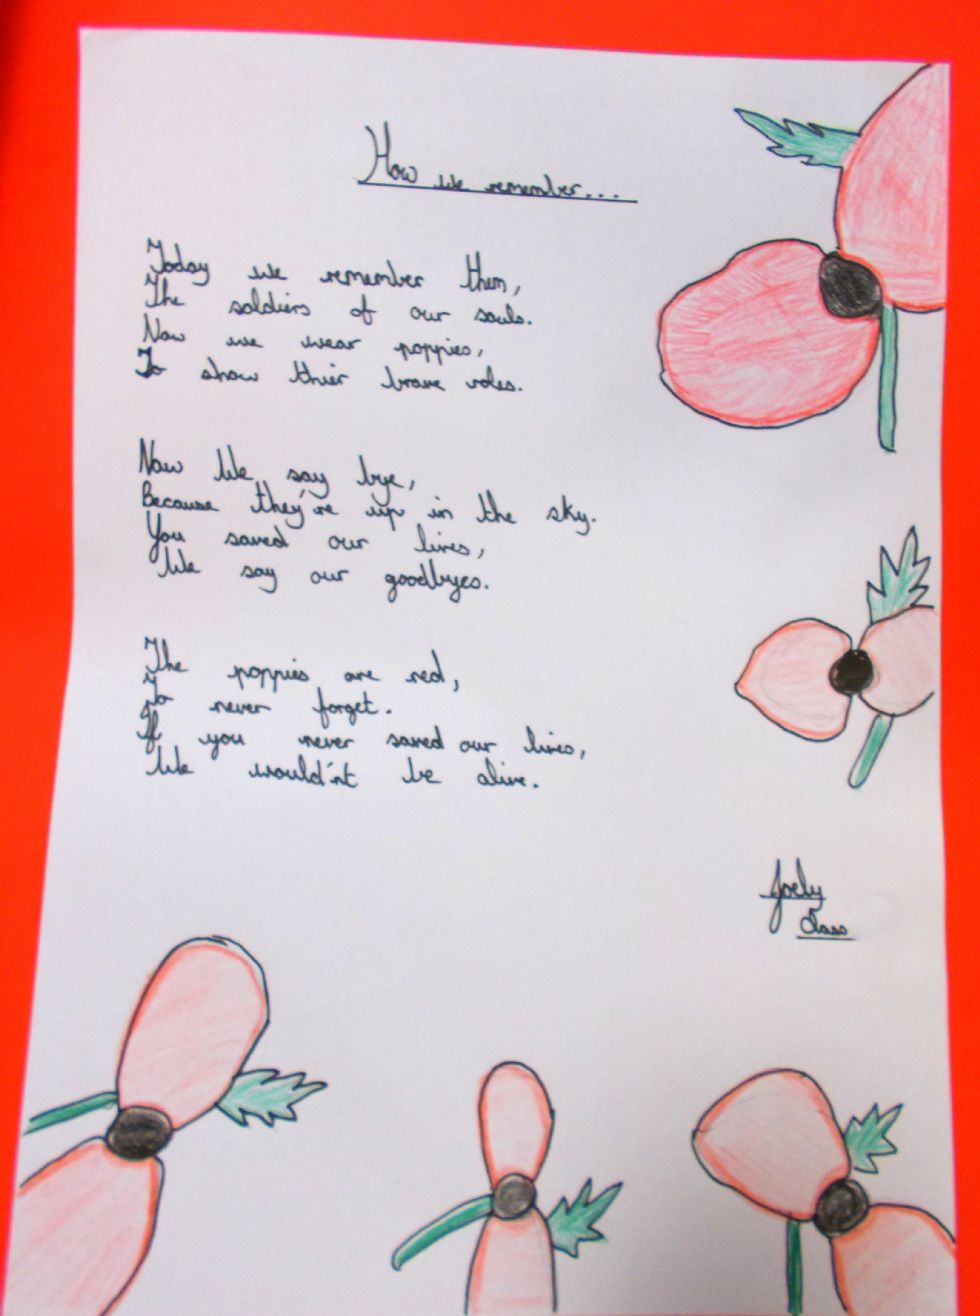 How we remember...
Today we remember them,
The soldiers of our souls.
Now we wear poppies,
To show thier brave roles.
Now We say bye,
Because they're up in the sky.
You saved our lives,
We say our goodbyes.
The poppies are red,
To never forget.
If you never saved our lives,
We would'nt be alive.
Joely